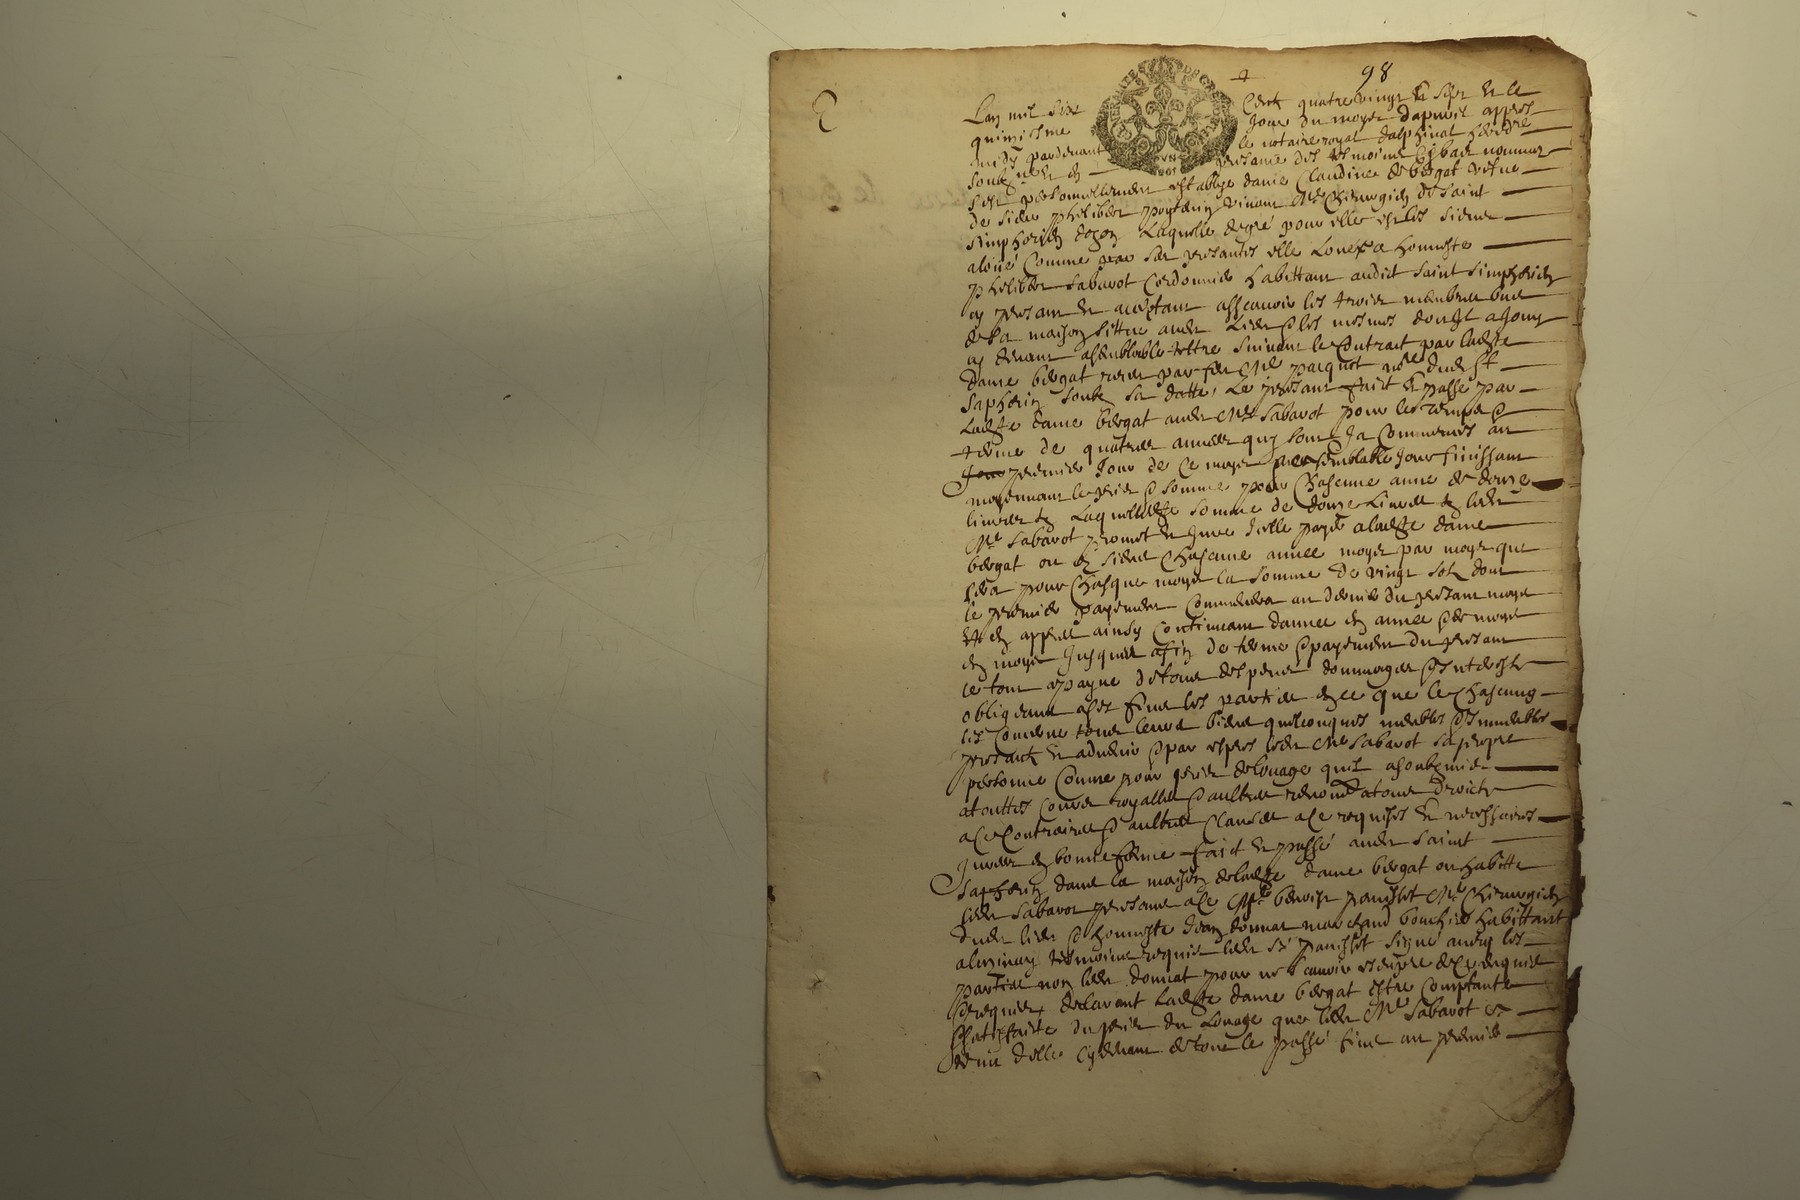 98
Lan mil six Cent quatre vingt & sept & le
quinzisme Jour du moys dapvril appres
midy pardevant le notaire royal dalphinal hereditaire
soubz né & en presance des tesmoins cybas nommes
sest personnellement establye dame Claudine bergat vefve
de sieur philibert vivant Me Chirurgien de Saint
simphorien dozon Laquelle de gré pour elle & les siens
a loué comme par ses presantes elle Loue a honneste
philibert Sabarot Cordonnier habittant audict saint simphorien
cy presant & aceptant asscavoir les troies membres
de sa maison sittue audit Lieu & les mesmes dont Il a Jouy
cy devant a semblable tittre suivant le Contrait par ladite
dame bergat receu par feu Me pacquot nore dudit St
saphorin soubz sa datte, Le presant faict & passé par
Ladite dame bergat audit Me Sabarot pour le temps &
terme de quattre annees quy sont Ja commences au
premier Jour de ce moys & a semblable Jour finissant
moyenant le prix & somme pour Chascune anne de douze
livres Laquelle somme de douze Livres ledit
Me Sabarot promet & Jure Icelle payer a ladite dame
bergat ou es siens Chascune annee moys par moys que
sera pour Chasque moys la somme de vingt solz dont
le premier payement commencera au dernier du presant moys
& en appres ainsy continuant dannee en annee & de moys
en moys Jusques a fin de terme & payement du presant
le tout a payne de tous despens dommages & Interestz
obligeant a ses fins les parties en ce que le Chascung
les concerne tous leurs biens quelconques meubles & Immeubles
presantz & advenir & par expres ledit Me Sabarot sa propre
personne comme pour prix de louage quil a soubzmis
a touttes Cours royalles & aultres renoncé a tous droictz
a ce Contraires & aultres Clauses a ce requises & necessaires
Jurees en bonne forme faict & passé audit saint
saphorin dans la maison de ladite dame bergat ou habitte
ledit Sabarot presants a ce Me benoist Me Chirurgien
dudit lieu & honneste Jean donnat marchand bouchier habittant
tesmoins requis ledit sr signé avecq les
parties non ledit donnat pour ne scavoir escripre de ce enquis
& requis, declarant Ladite dame bergat estre Comptante
& satisfaite du prix du Louage que ledit Me Sabarot a
tenu delle cydevant de tout le passé finit au premier